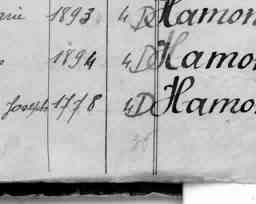 1893 4 D Hamon
1894 4 D Hamon
Joseph 1778 4 D Hamon